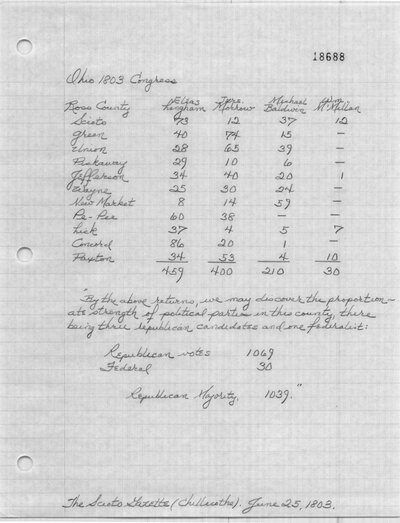 18688
Ohio 1803 Congress
Ross County Elias Langham Jere. Morrow Michael Baldwin Wm. McMillan
Scioto 73 12 37 12
Green 40 74 15 –
Union 28 65 39 –
Pickaway 29 10 6 –
Jefferson 34 40 20 1
Wayne 25 30 24 –
New Market 8 14 59 –
Pe-Pee 60 38 – –
Lick 37 4 5 7
Concord 86 20 1 –
Paxton 34 53 4 10
459 400 210 30
"By the above returns, we may discover the proportion-
ate strength of political parties in this county, there
being three republican candidates and one federalist:
Republican votes 1069
Federal 30
Republican Majority, 1039."
The Scioto Gazette (Chillicothe). June 25, 1803.